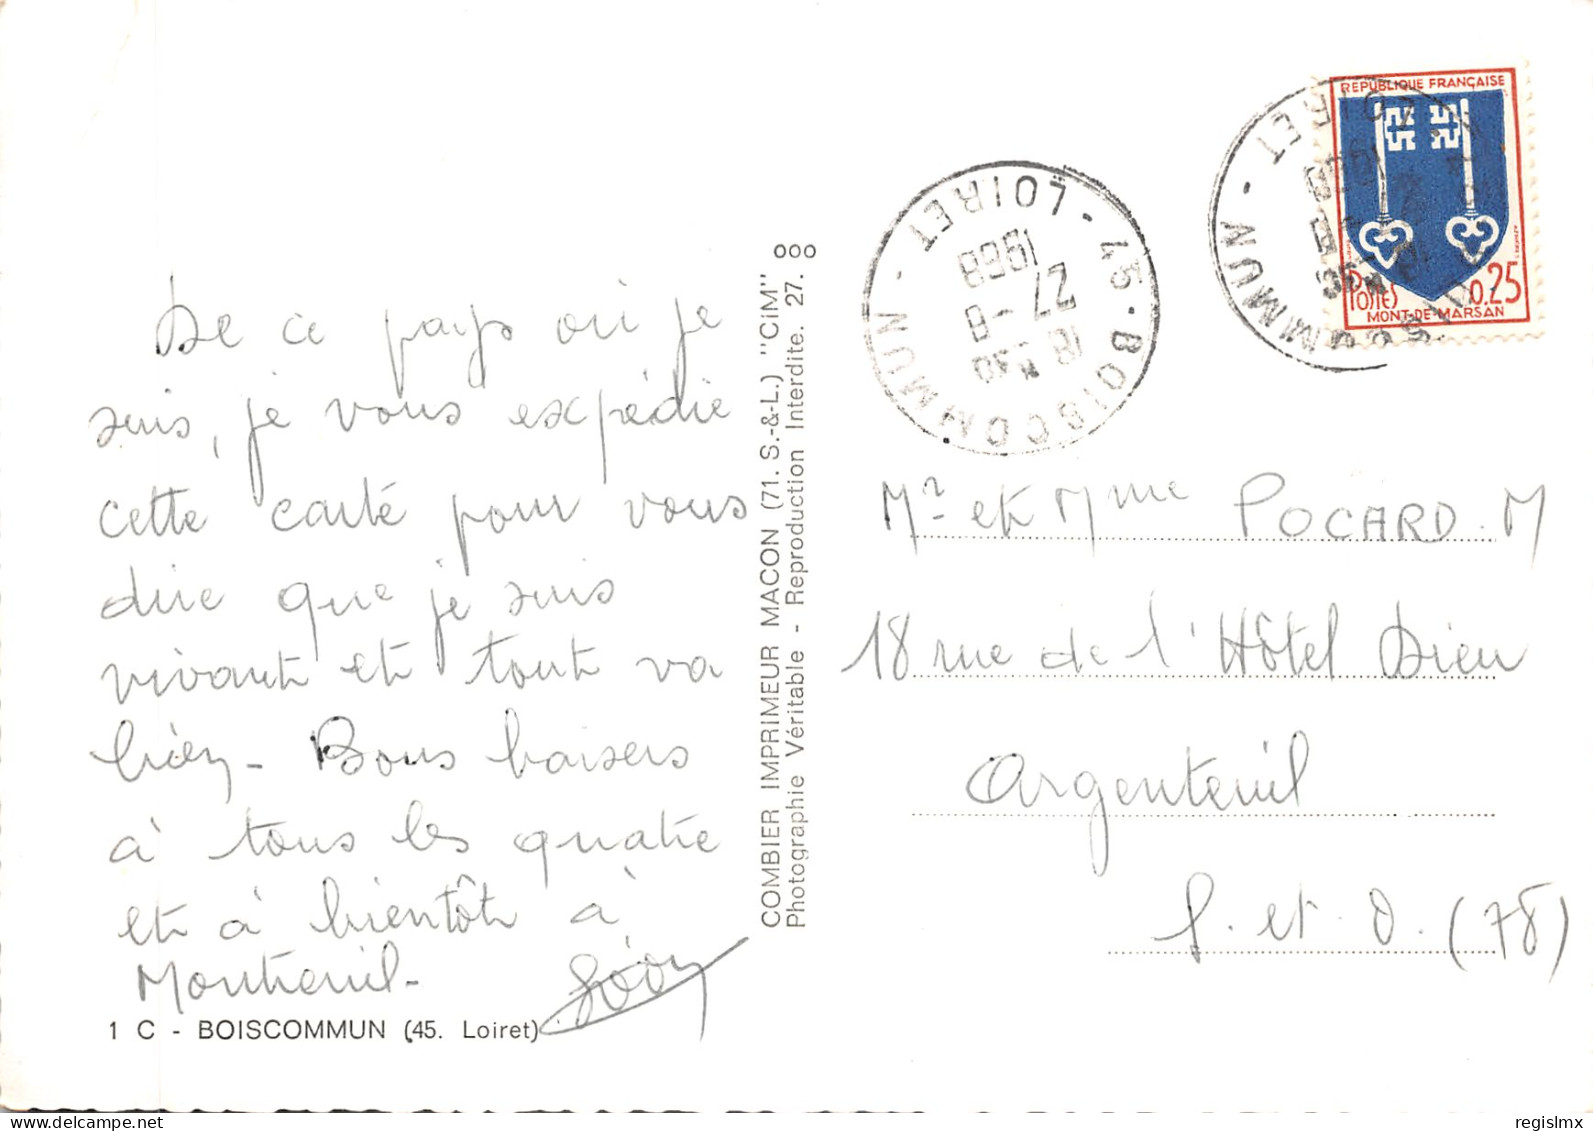 De ce pays où je
suis, je vous expédie
cette carte pour vous
dire que je suis
vivant et tout va
bien - Bons baisers
à tous les quatre
et à bientôt à
Montreuil -
Léon
1 C - BOISCOMMUN (45. Loiret)
COMBIER IMPRIMEUR MACON (71. S.-&-L.) "CiM"
Photographie Véritable - Reproduction Interdite. 27.
45 - BOISCOMMUN - LOIRET -
18 H30
27 - 8
1968
BOISCOMMUN - LOIRET
REPUBLIQUE FRANÇAISE
POSTES 0,25
MONT-DE-MARSAN
Mr et Mme POCARD. M
18 rue de l'Hôtel Dieu
Argenteuil
S. et O. (78)
regislmx
www.delcampe.net